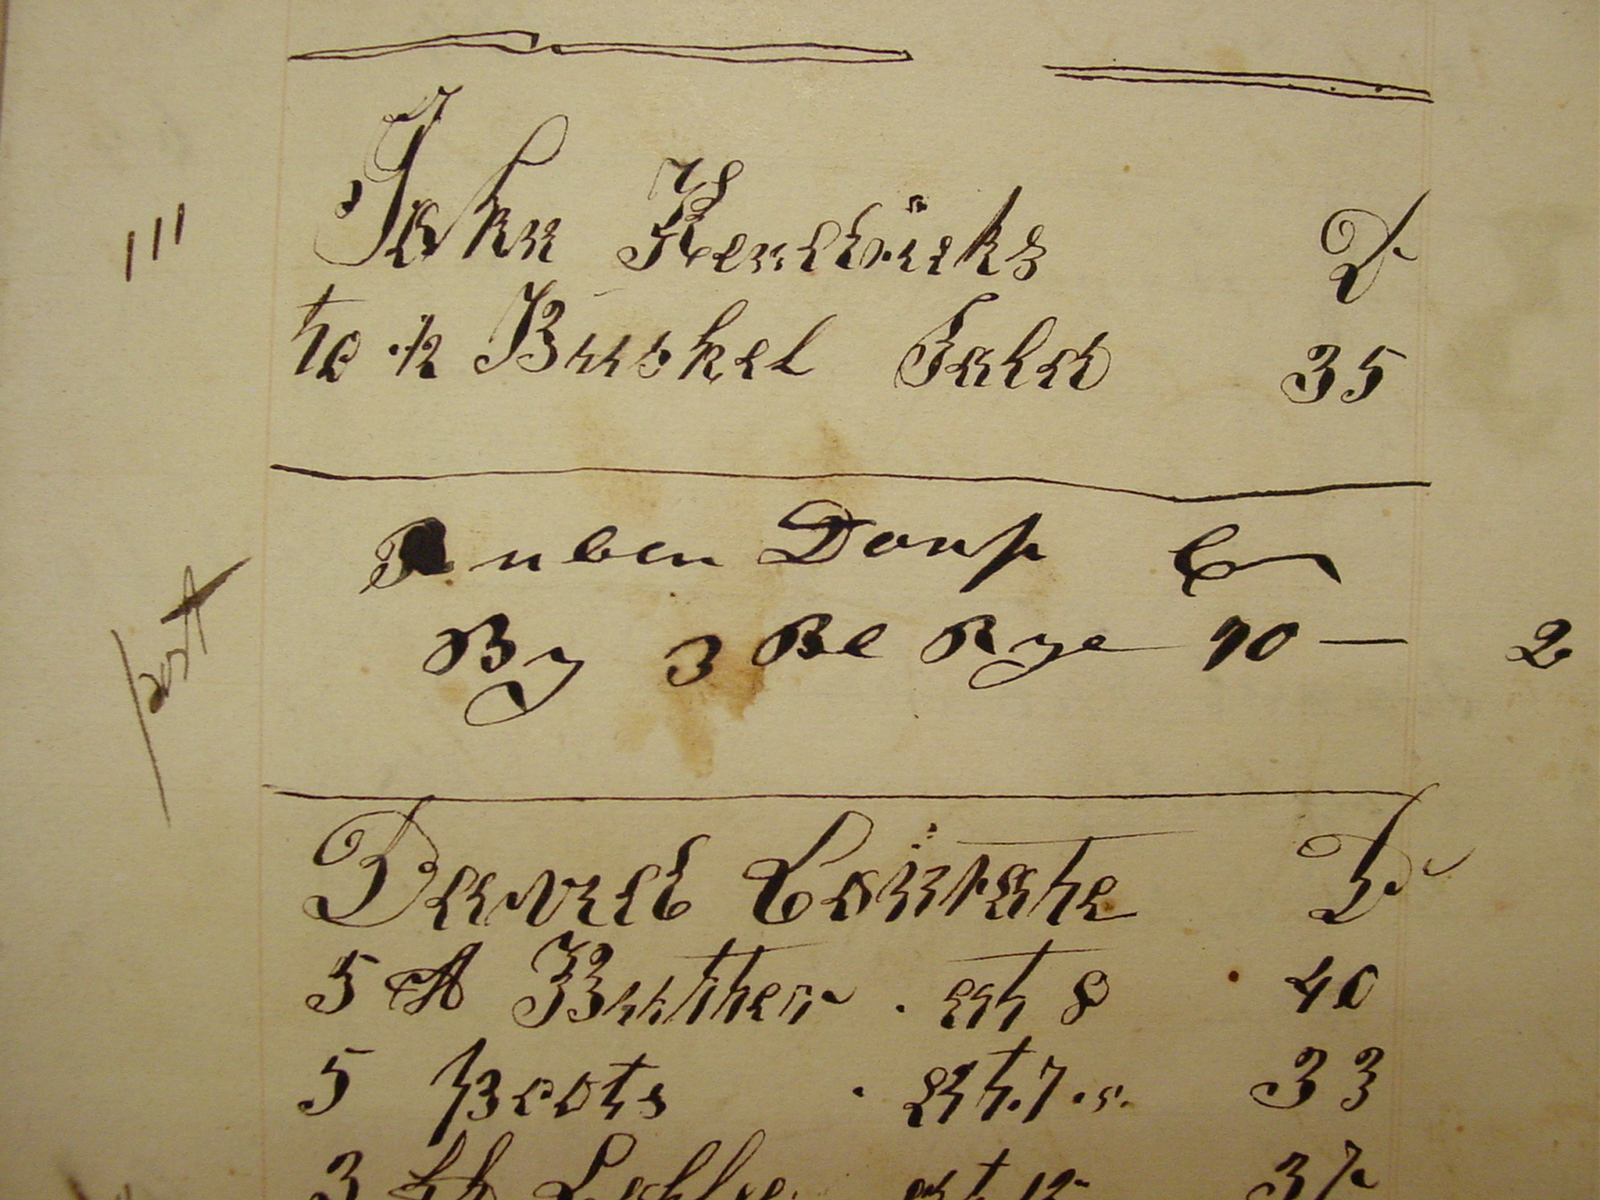 111 John Kendricks Dr
to 1/2 Bushel Salt 35
Ruben Dorsh Cr
post By 3 Bl Rye 70 — 2
David Conrate Dr
5 lb Butter . at 8 40
5 Boots . at 7 33
3 lb Coffee at 12 37